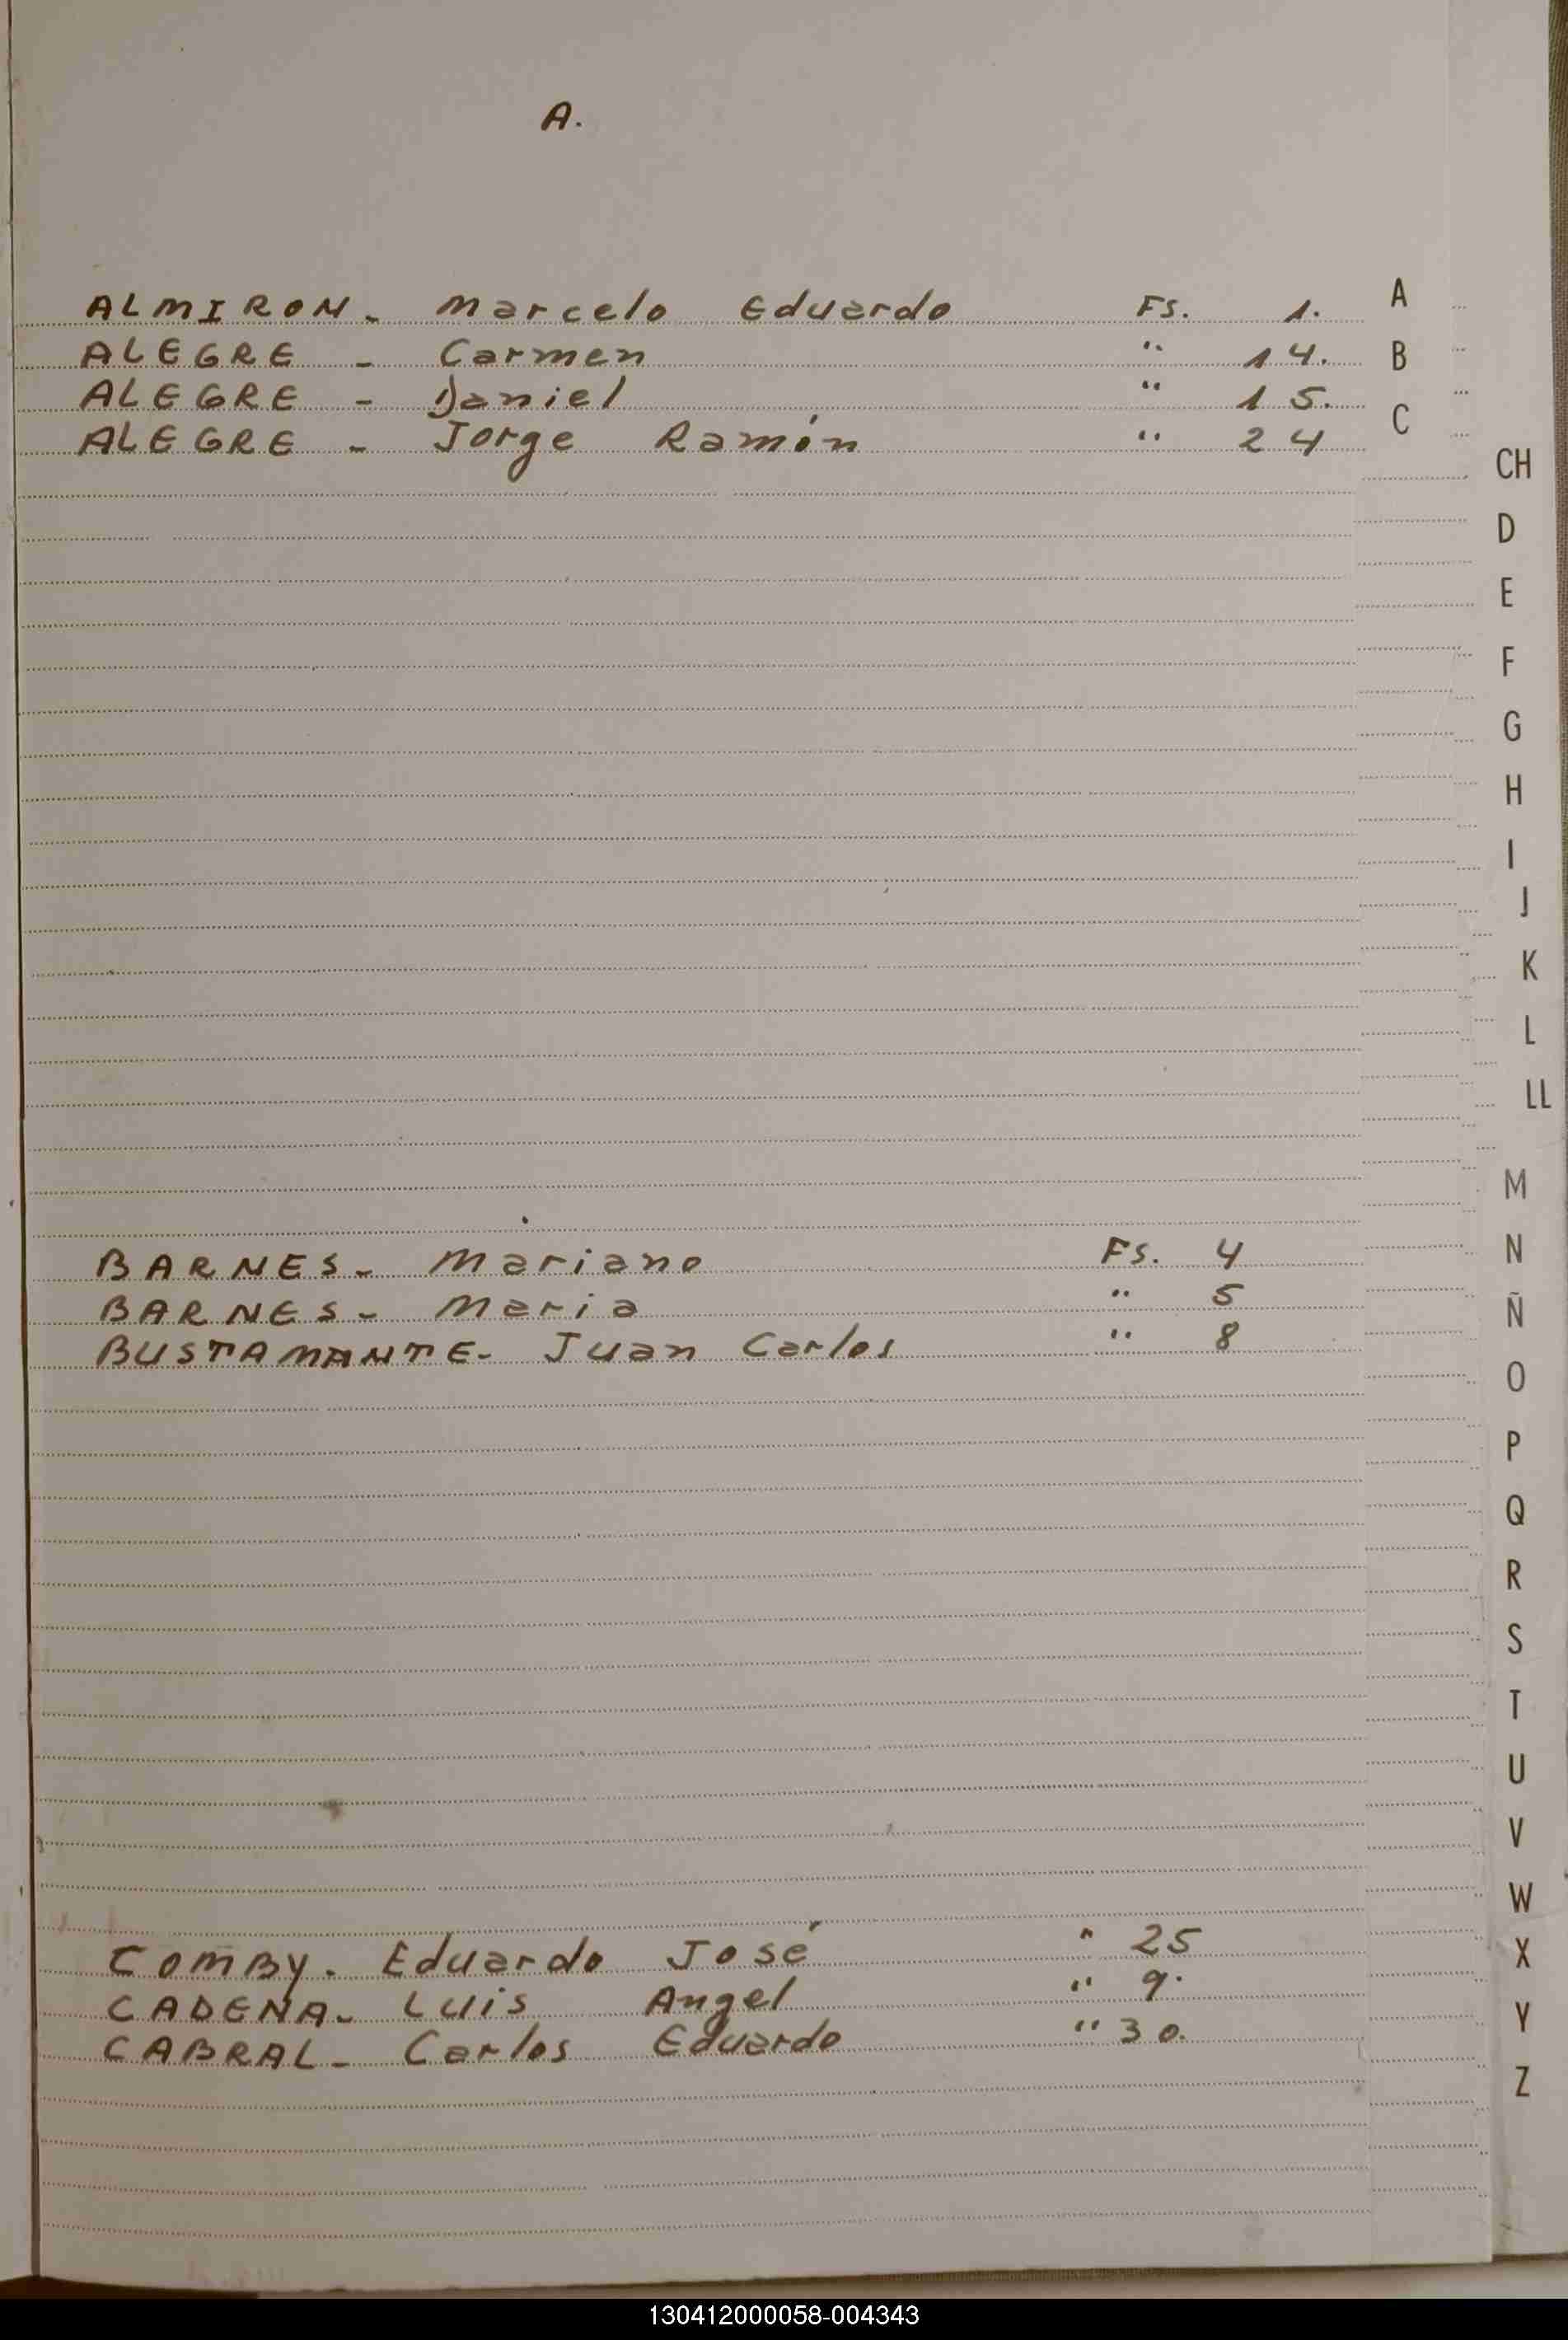 A.
ALMIRON - Marcelo Eduardo Fs. 1.
ALEGRE - Carmen " 14.
ALEGRE - Daniel " 15.
ALEGRE - Jorge Ramón " 24
BARNES - Mariano Fs. 4
BARNES - Maria " 5
BUSTAMANTE - Juan Carlos " 8
COMBY. Eduardo José " 25
CADENA - Luis Angel " 9.
CABRAL - Carlos Eduardo " 30.
A
B
C
CH
D
E
F
G
H
I
J
K
L
LL
M
N
Ñ
O
P
Q
R
S
T
U
V
W
X
Y
Z
130412000058-004343